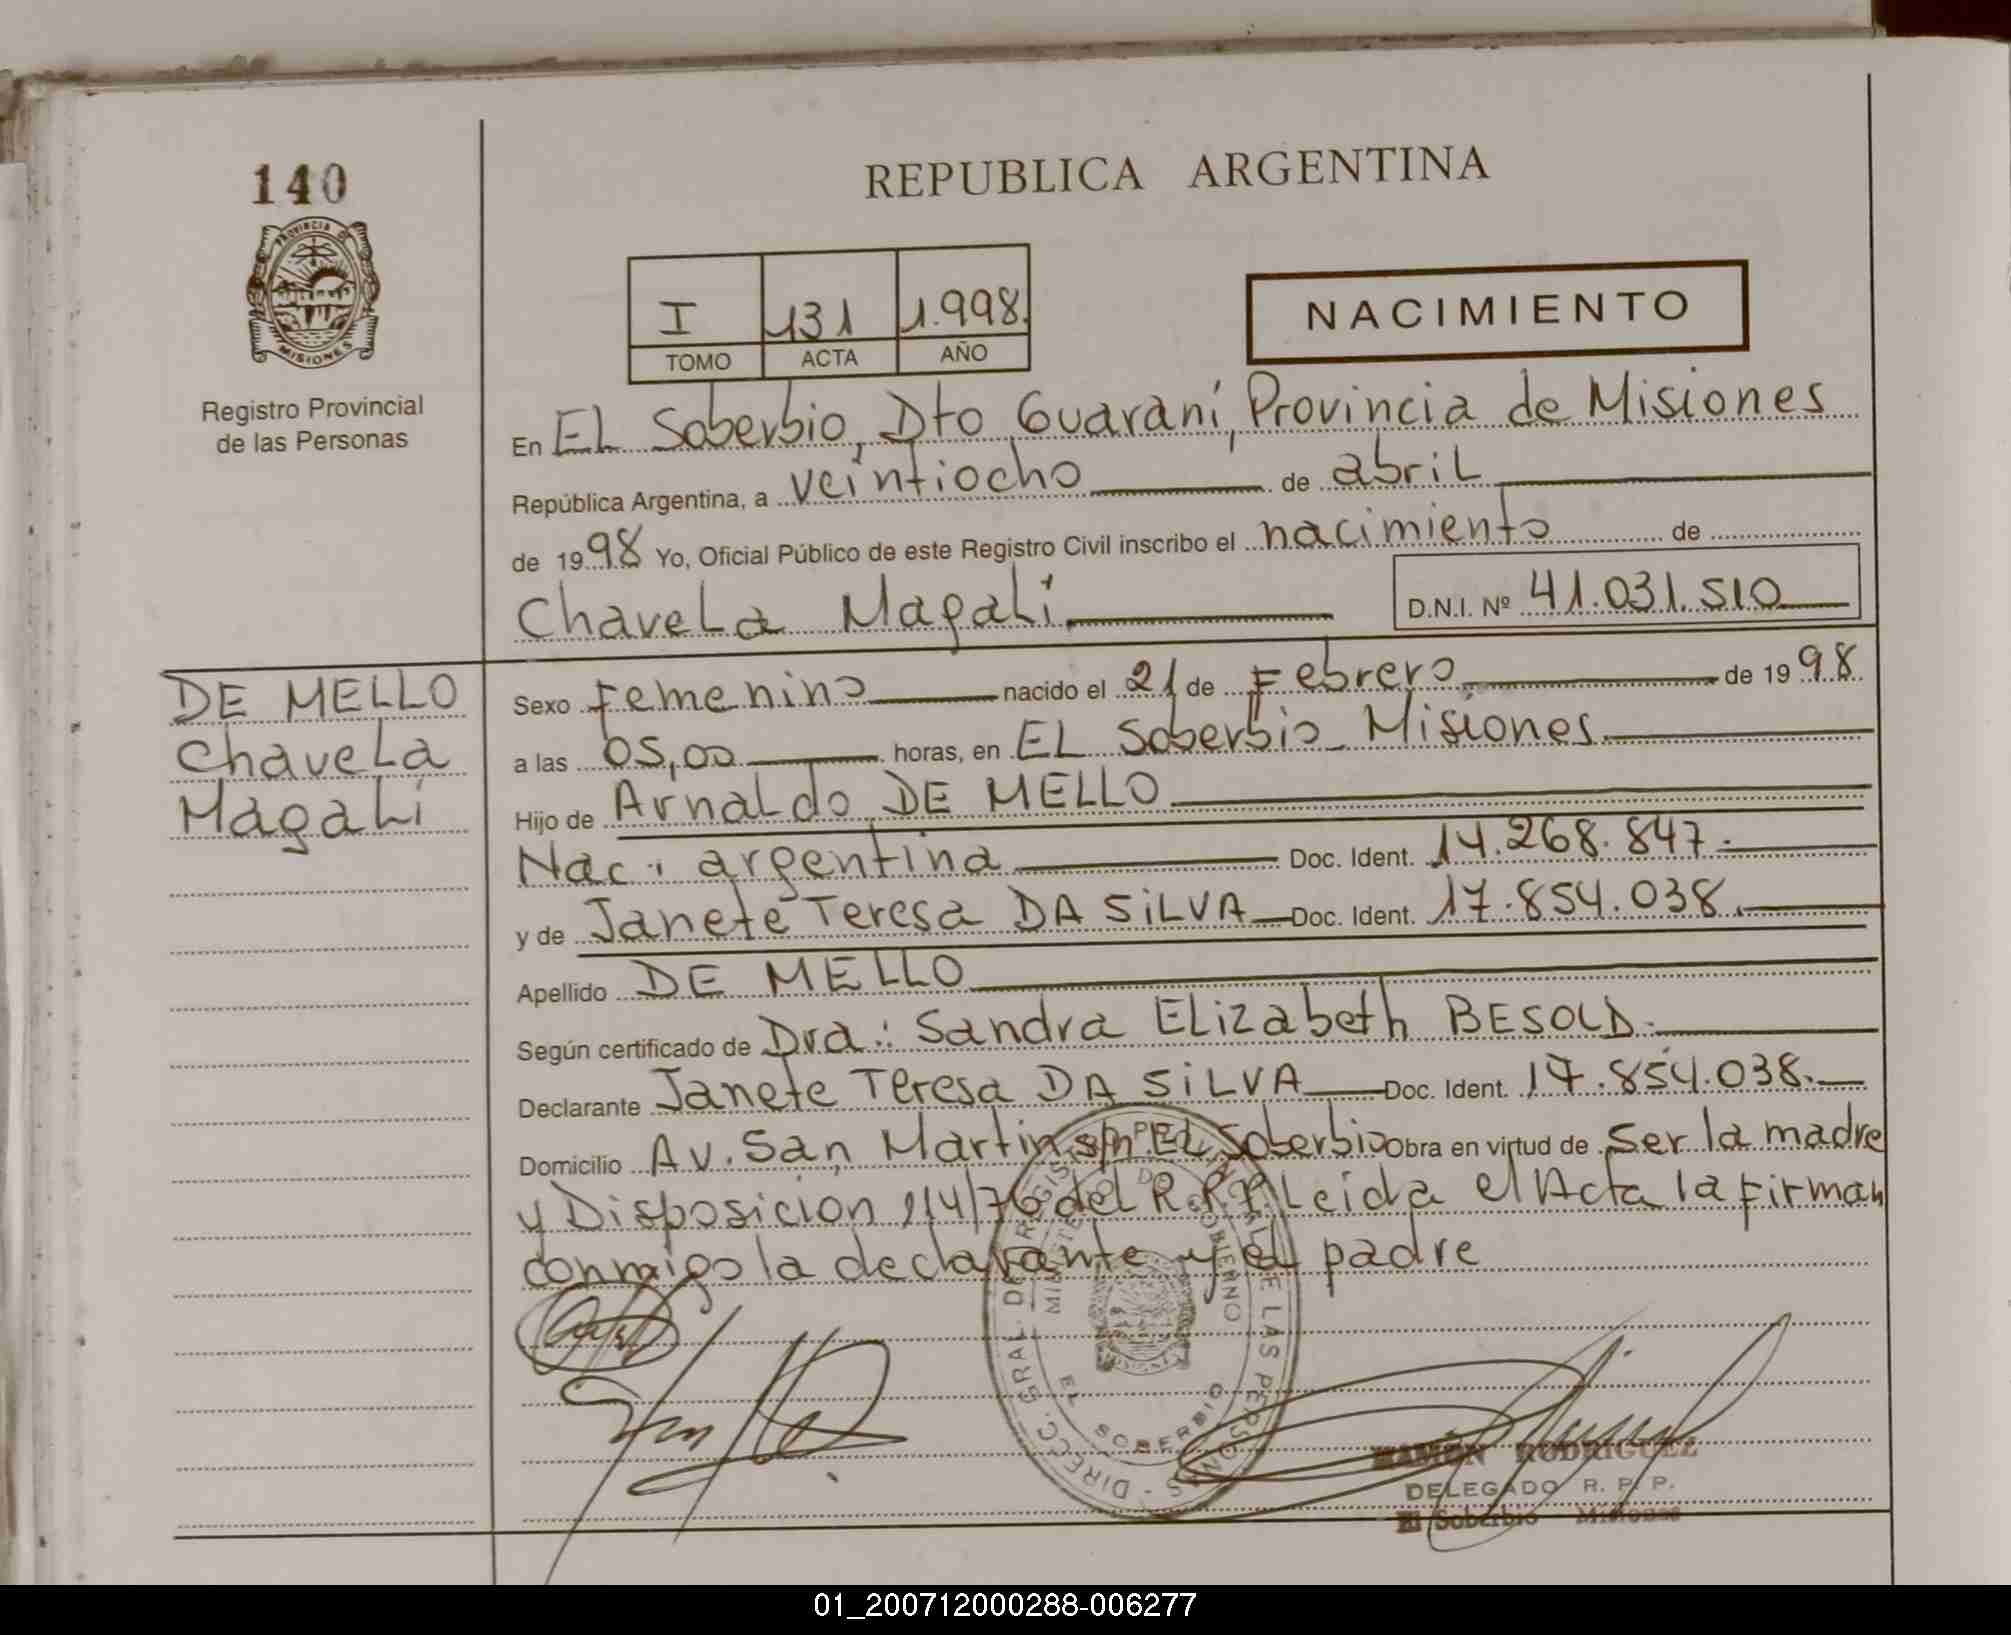 140
PROVINCIA DE
MISIONES
Registro Provincial
de las Personas
REPUBLICA ARGENTINA
I 131 1.998.
TOMO ACTA AÑO
NACIMIENTO
En EL Soberbio, Dto Guaraní, Provincia de Misiones
República Argentina, a veintiocho de abril
de 1998 Yo, Oficial Público de este Registro Civil inscribo el nacimiento de
Chavela Magali D.N.I. Nº 41.031.510
DE MELLO
Chavela
Magali
Sexo Femenino nacido el 21 de Febrero de 1998
a las 05,00 horas, en EL Soberbio - Misiones
Hijo de Arnaldo DE MELLO
Nac: argentina Doc. Ident. 14.268.847.-
y de Janete Teresa DA SiLVA Doc. Ident. 17.854.038.
Apellido DE MELLO
Según certificado de Dra: Sandra Elizabeth BESOLD.
Declarante Janete Teresa DA SiLVA Doc. Ident. 17.854.038.
Domicilio Av. San Martin s/n EL Soberbio Obra en virtud de ser la madre
y Disposicion 214/76 del R.P.P. Leida el Acta la firman
conmigo la declarante y el padre
DIRECC. GRAL. DE REGISTRO PROVINCIAL DE LAS PERSONAS
MINISTERIO DE GOBIERNO
EL SOBERBIO
RAMON RODRIGUEZ
DELEGADO R. P. P.
El Soberbio - Misiones
01_200712000288-006277